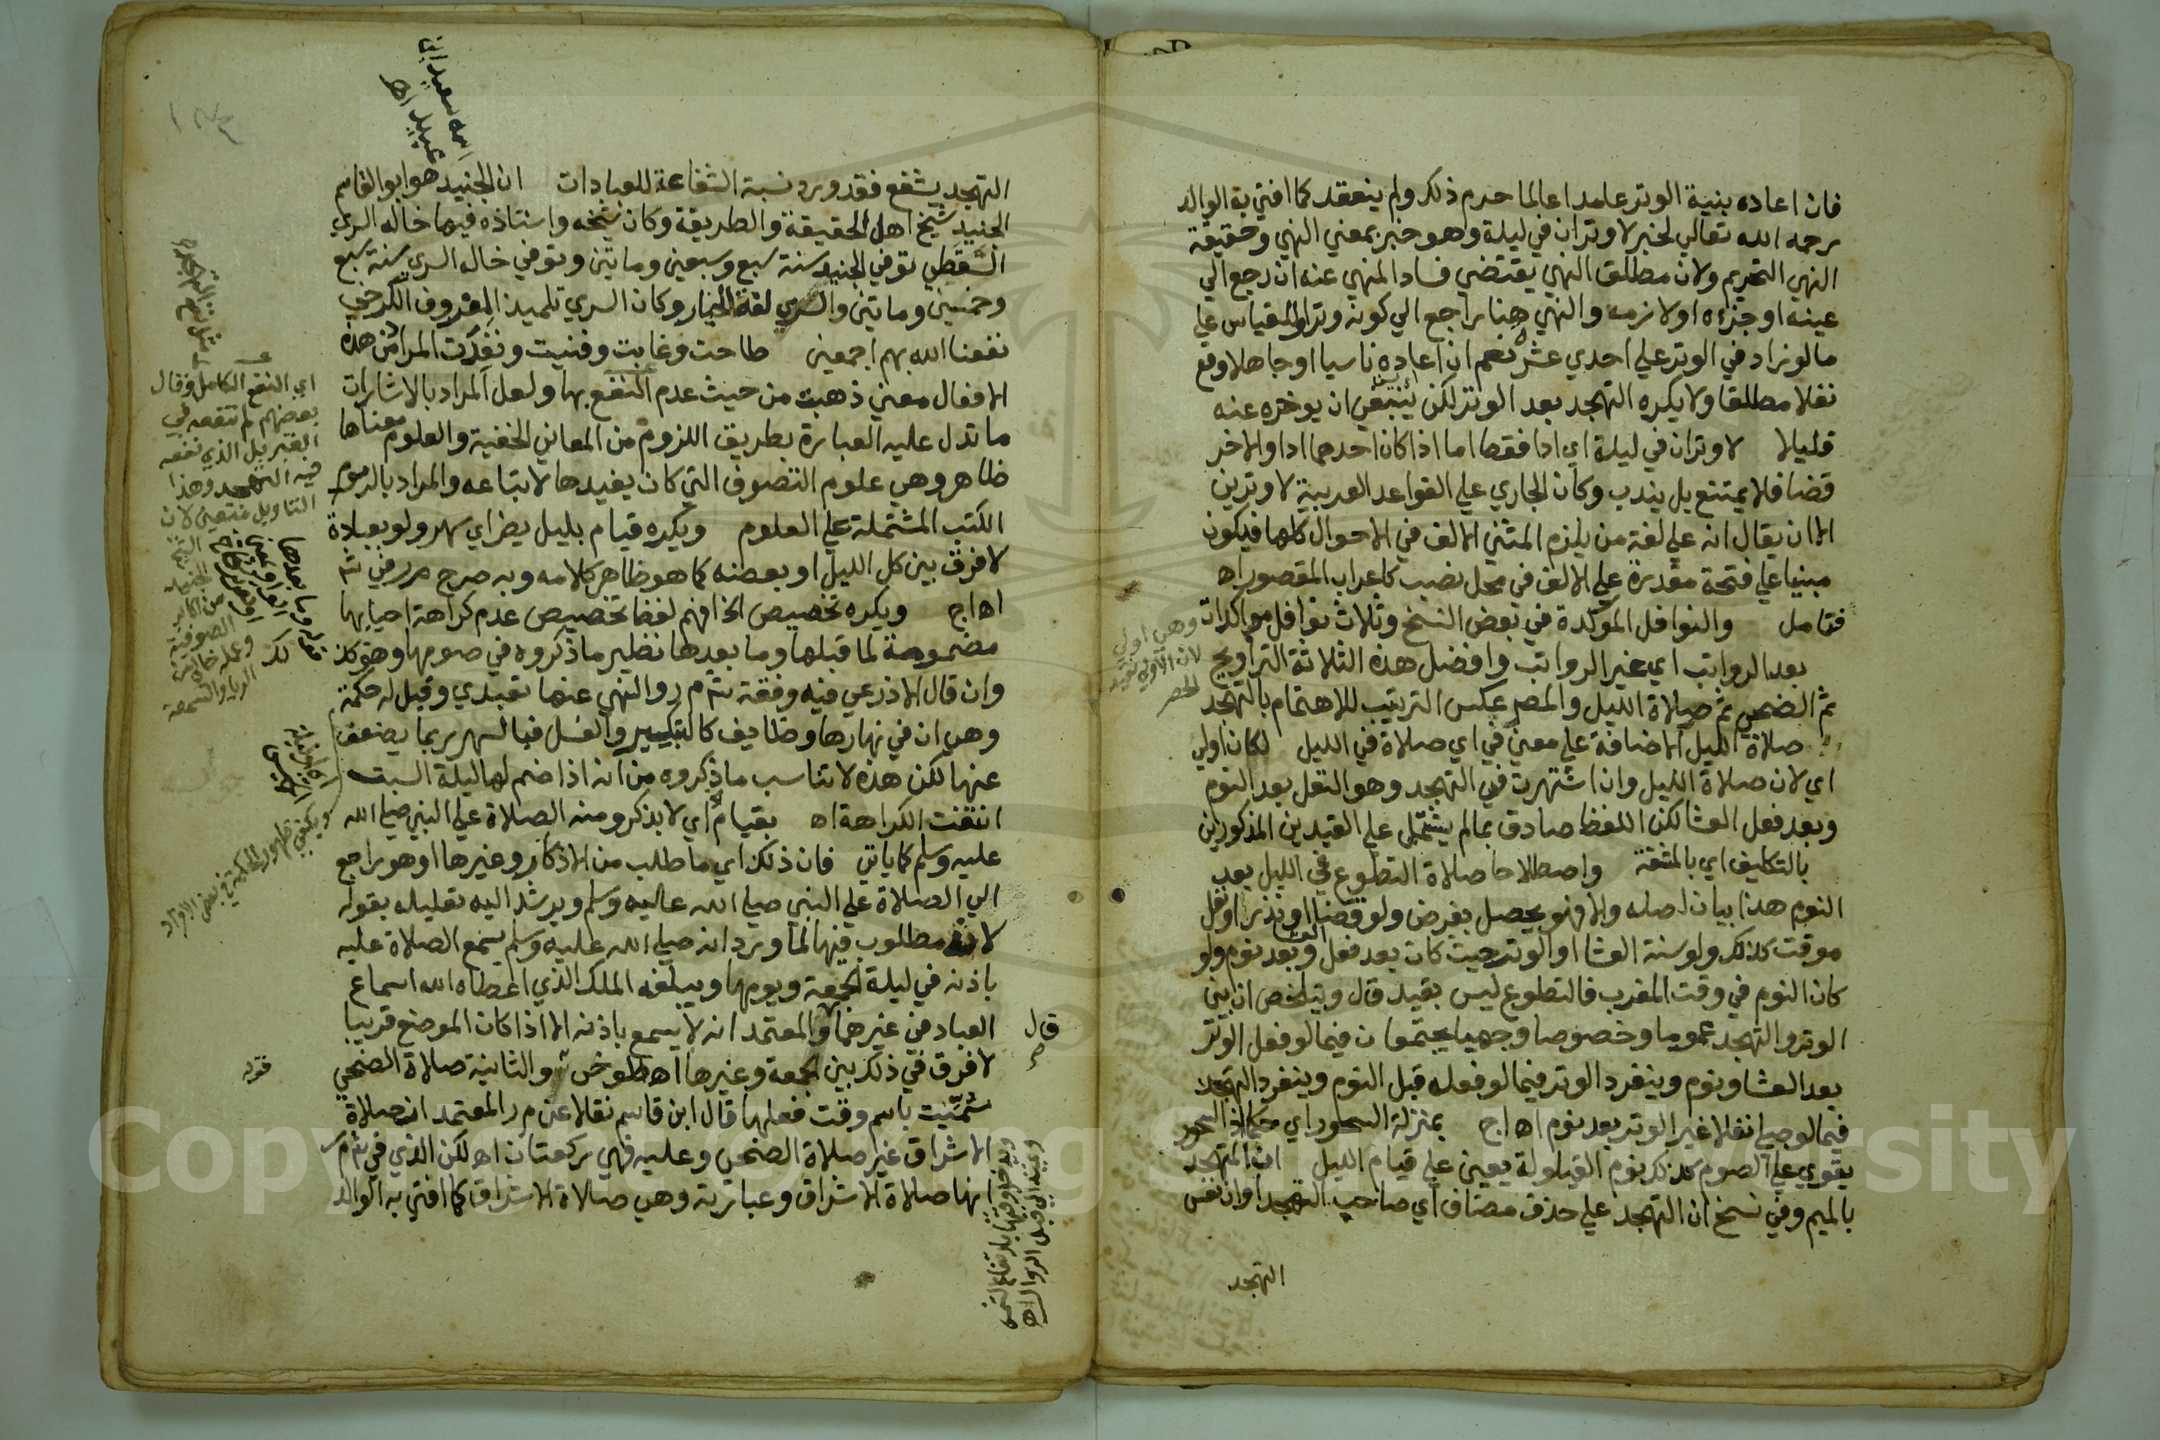 فان اعاده بنية الوتر عامدا عالما حرم ذلك ولم ينعقد كما افتي به الوالد
رحمه الله تعالي لخبر لا وتران في ليلة وهو خبر بمعني النهي وحقيقة
النهي التحريم ولان مطلق النهي يقتضي فساد المنهي عنه ان رجع الي
عينه او جزئه او لازمه والنهي هنا راجع الي كونه وترا والقياس علي
ما لو زاد في الوتر علي احدي عشرة نعم ان اعاده ناسيا او جاهلا وقع
نفلا مطلقا ولا يكره التهجد بعد الوتر لكن ينبغي ان يوخره عنه
قليلا لا وتران في ليلة اي ادا فقط اما اذا كان احدهما ادا والاخر
قضا فلا يمتنع بل يندب وكان الجاري علي القواعد العربية لا وترين
الا ان يقال انه علي لغة من يلزم المثني الالف في الاحوال كلها فيكون
مبنيا علي فتحة مقدرة علي الالف في محل نصب كاعراب المقصور اه
فتامل والنوافل الموكدة في بعض النسخ وثلاث نوافل موكدات
بعد الرواتب اي غير الرواتب وافضل هذه الثلاثة التراويح
ثم الضحي ثم صلاة الليل والمصر عكس الترتيب للاهتمام بالتهجد
صلاة الليل الاضافة علي معني في اي صلاة في الليل لكان اولي
اي لان صلاة الليل وان اشتهرت في التهجد وهو النفل بعد النوم
وبعد فعل العشا لكن اللفظ صادق بما لم يشتمل علي القيدين المذكورين
بالتكليف اي بالمشقة واصطلاحا صلاة التطوع في الليل بعد
النوم هذا بيان لصله والا فهو يحصل بفرض ولو قضا او نذرا او نفل
موقت كذلك ولو سنة العشا او الوتر حيث كان بعد فعل العشا وبعد نوم ولو
كان النوم في وقت المغرب فالتطوع ليس بقيد قال ويتلخص ان بين
الوتر والتهجد عموما وخصوصا وجهيا يجتمعان فيما لو فعل الوتر
بعد العشا ونوم وينفرد الوتر فيما لو فعله قبل النوم وينفرد التهجد
فيما لو صلي نفلا غير الوتر بعد نوم اه اج بمنزلة السحور اي حكما اذ السحور
يقوي علي الصوم كذلك نوم القيلولة يعين علي قيام الليل ان المتهجد
بالميم وفي نسخ ان التهجد علي حذف مضاف اي صاحب التهجد او ان نفس
التهجد
وهي اولي
التهجد يشفع فقد ورد نسبة الشفاعة للعبادات ان الجنيد هو ابو القاسم
الجنيد شيخ اهل الحقيقة والطريقة وكان شيخه واستاذه فيهما خاله السري
السقطي توفي الجنيد سنة سبع وسبعين وماتين وتوفي خاله السري سنة سبع
وخمسين وماتين والسري لغة الخيار وكان السري تلميذ المعروف الكرخي
نفعنا الله بهم اجمعين طاحت وغابت وفنيت ونفدت المراد من هذه
الافعال معني ذهبت من حيث عدم النفع بها ولعل المراد بالاشارات
ما تدل عليه العبارة بطريق اللزوم من المعاني الخفية والعلوم معناها
ظاهر وهي علوم التصوف التي كان يفيدها لاتباعه والمراد بالرسوم
الكتب المشتملة علي العلوم ويكره قيام بليل يضر اي سهر ولو بعبادة
لا فرق بين كل الليل او بعضه كما هو ظاهر كلامه وبه صرح م ر في ش
اه اج ويكره تخصيص الخ افهم لفظ تخصيص عدم كراهة احيايها
مضمومة لما قبلها وما بعدها نظير ما ذكروه في صومها وهو كذلك
وان قال الاذرعي فيه وقفة ش م ر والنهي عنها تعبدي وقيل له حكمة
وهي ان في نهارها وظايف كالتبكير والغسل فبالسهر ربما يضعف
عنها لكن هذه لا تناسب ما ذكروه من انه اذا ضم لها ليلة السبت
انتفت الكراهة اه بقيام اي لا بذكر ومنه الصلاة علي النبي صلي الله
عليه وسلم كما ياتي فان ذلك اي ما طلب من الاذكار وغيرها او هو راجع
الي الصلاة علي النبي صلي الله عليه وسلم ويرشد اليه تعليله بقوله
لانه مطلوب فيها لما ورد انه صلي الله عليه وسلم يسمع الصلاة عليه
باذنه في ليلة الجمعة ويومها ويبلغه الملك الذي اعطاه الله اسماع
العباد في غيرهما والمعتمد انه لا يسمع باذنه الا اذا كان الموضع قريبا
لا فرق في ذلك بين الجمعة وغيرها اه طوخي والثانية صلاة الضحي
سميت باسم وقت فعلها قال ابن قاسم نقلا عن م ر المعتمد ان صلاة
الاشراق غير صلاة الضحي وعليه فهي ركعتان اه لكن الذي في ش م ر
انها صلاة الاشراق وعبارته وهي صلاة الاشراق كما افتي به الوالد
اي النفع الكامل وقال
بعضهم لم تنفعه في
القبر بل الذي نفعه
فيه التهجد وهذا
التاويل متعين لان
من اكابر
الصوفية
قال
قوله
Copyright © King Saud University